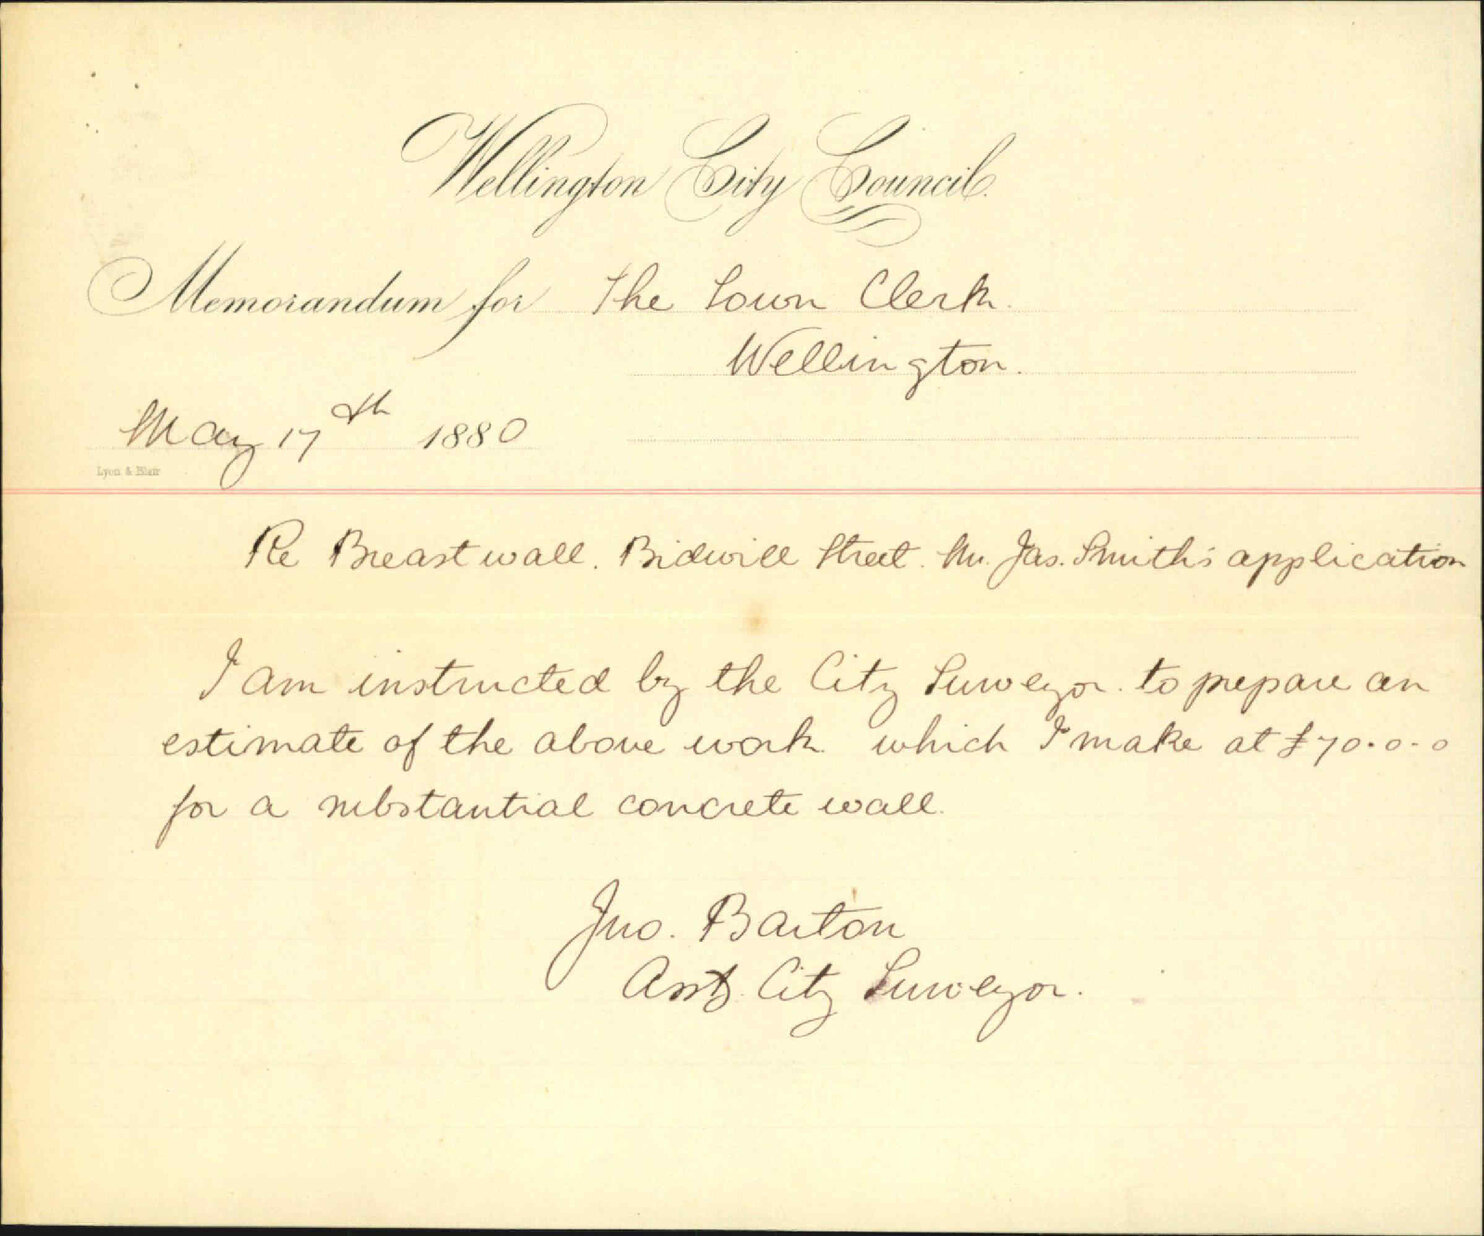 Wellington City Council.
Memorandum for The Town Clerk.
Wellington.
May 17th 1880
Lyon & Blair
Re Breast wall. Bidwill Street. Mr. Jas. Smith's application
I am instructed by the City Surveyor. to prepare an
estimate of the above work which I make at £70.0.0
for a substantial concrete wall.
Jno. Barton
Asst. City Surveyor.